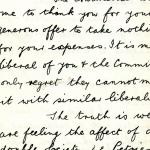 me to thank you for your
generous offer to take nothi
for your expenses. It is m
liberal of you & the Commi
only regret they cannot m
it with similar liberali
The truth is we
are feeling the affect of a
double